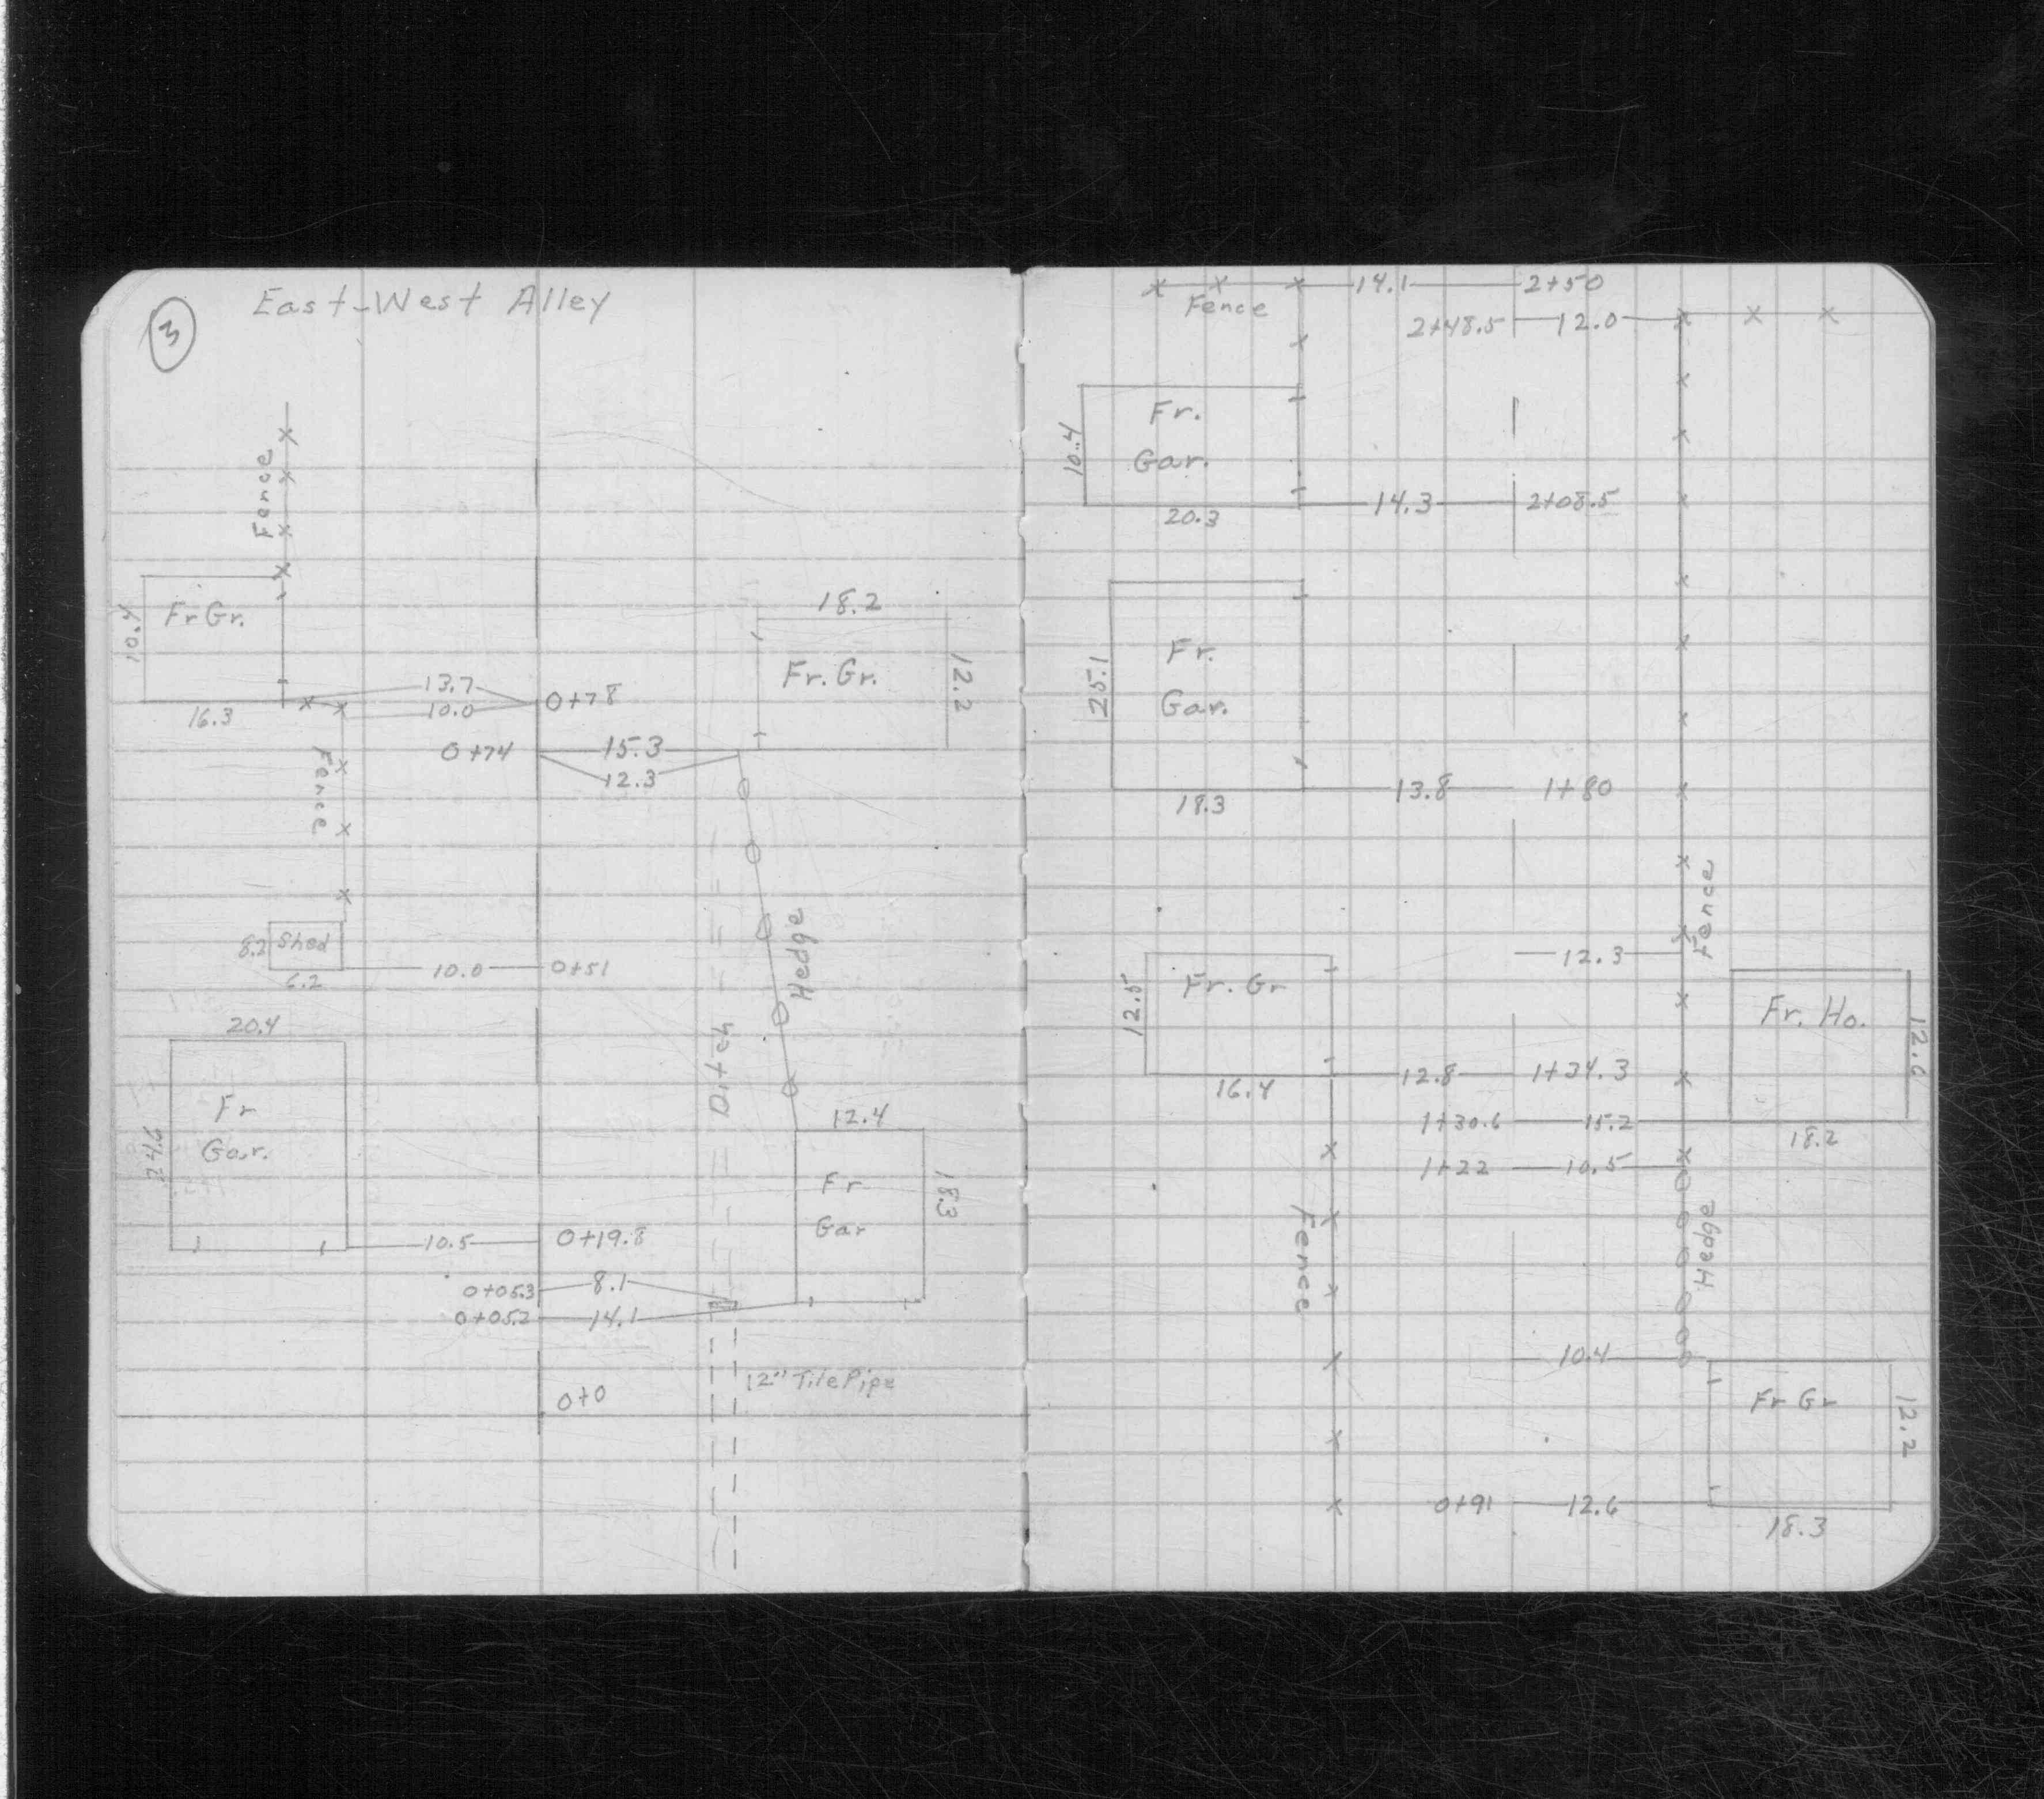 3
East-West Alley
Fence
Fr Gr.
10.4
16.3
13.7
10.0
0+78
18.2
Fr. Gr.
12.2
0+74
15.3
12.3
Fence
Hedge
Ditch
8.2
Shed
6.2
10.0
0+51
20.4
Fr
Gar.
24.6
12.4
Fr
Gar
18.3
10.5
0+19.8
0+05.3
8.1
0+05.2
14.1
12" Tile Pipe
0+0
14.1
2+50
Fence
2+48.5
12.0
Fr.
Gar.
10.4
20.3
14.3
2+08.5
Fr.
Gar.
25.1
18.3
13.8
1+80
Fence
12.3
Fr. Gr
12.5
16.4
Fr. Ho.
18.2
12.8
1+34.3
1+30.6
15.2
1+22
10.5
Fence
Hedge
10.4
Fr Gr
12.2
0+91
12.6
18.3